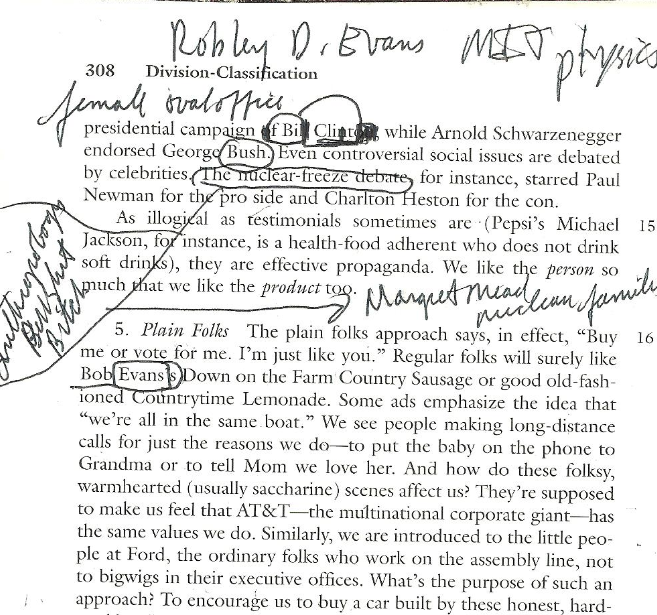 Robley D. Evans MIT physics
308 Division-Classification
female oval office
presidential campaign of Bill Clinton, while Arnold Schwarzenegger
endorsed George Bush. Even controversial social issues are debated
by celebrities. The nuclear-freeze debate, for instance, starred Paul
Newman for the pro side and Charlton Heston for the con.
As illogical as testimonials sometimes are (Pepsi's Michael 15
Jackson, for instance, is a health-food adherent who does not drink
soft drinks), they are effective propaganda. We like the person so
much that we like the product too.
Margret Mead
nuclear family
Anthropology
5. Plain Folks The plain folks approach says, in effect, "Buy 16
me or vote for me. I'm just like you." Regular folks will surely like
Bob Evans's Down on the Farm Country Sausage or good old-fash-
ioned Countrytime Lemonade. Some ads emphasize the idea that
"we're all in the same boat." We see people making long-distance
calls for just the reasons we do—to put the baby on the phone to
Grandma or to tell Mom we love her. And how do these folksy,
warmhearted (usually saccharine) scenes affect us? They're supposed
to make us feel that AT&T—the multinational corporate giant—has
the same values we do. Similarly, we are introduced to the little peo-
ple at Ford, the ordinary folks who work on the assembly line, not
to bigwigs in their executive offices. What's the purpose of such an
approach? To encourage us to buy a car built by these honest, hard-